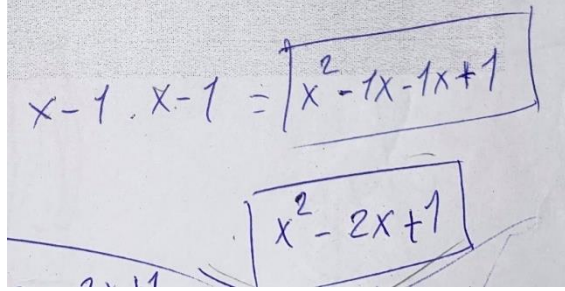 x-1 . x-1 = x²-1x-1x+1
x²-2x+1